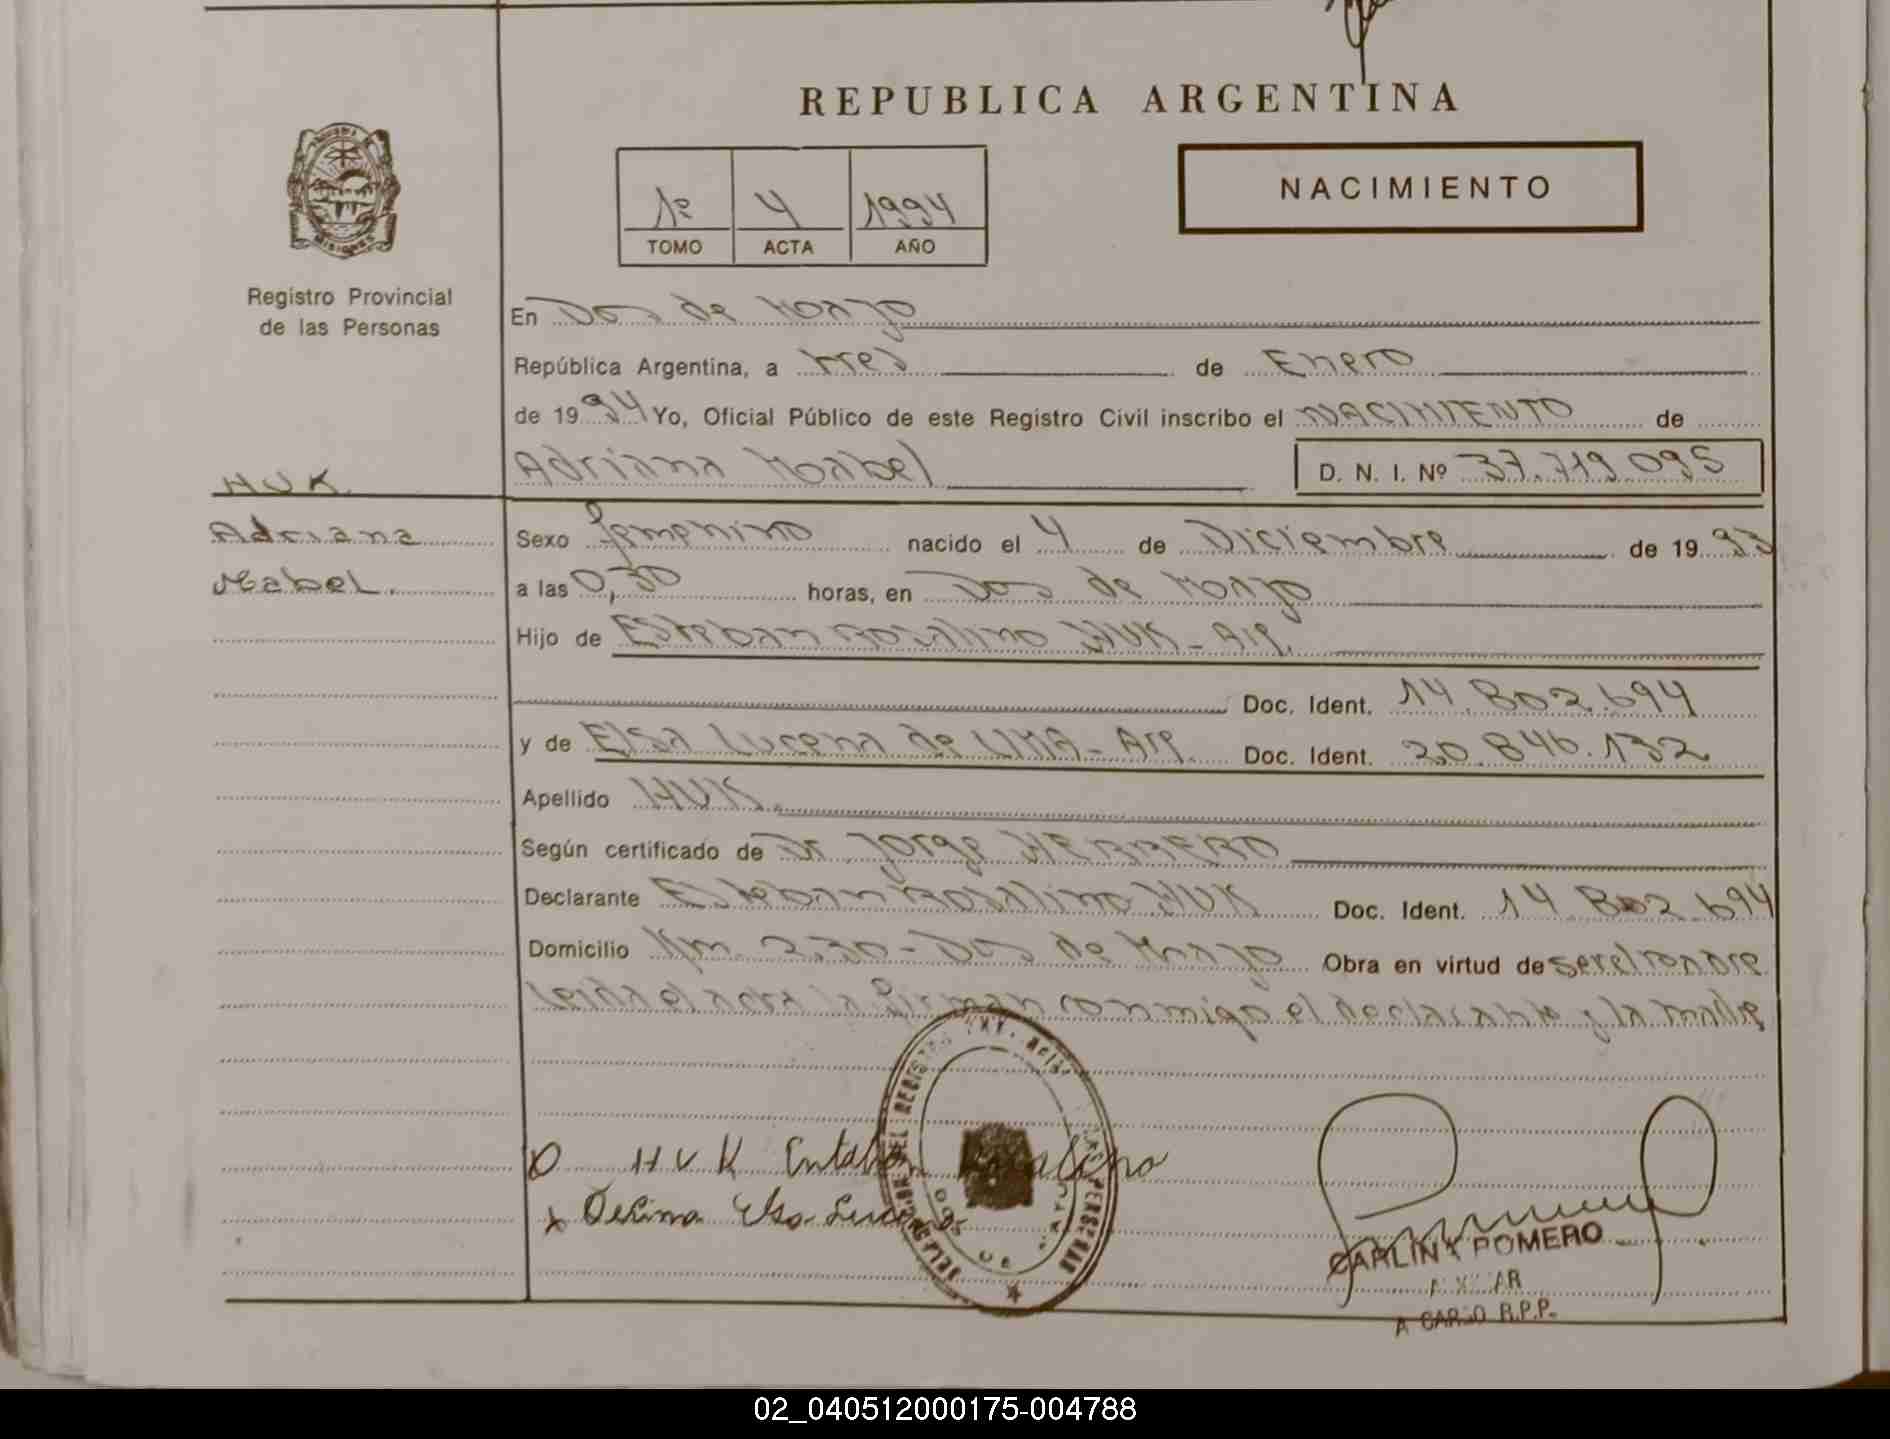 REPUBLICA ARGENTINA
NACIMIENTO
1º 4 1994
TOMO ACTA AÑO
Registro Provincial
de las Personas
En Dos de Mayo
República Argentina, a tres de Enero
de 1994 Yo, Oficial Público de este Registro Civil inscribo el NACIMIENTO de
Adriana Mabel D. N. I. Nº 37.719.095
HUK
Adriana
Mabel.
Sexo femenino nacido el 4 de Diciembre de 1993
a las 0,30 horas, en Dos de Mayo
Hijo de Esteban Rosalino HUK - Arg.
Doc. Ident. 14.802.694
y de Elsa Lucena de LIMA - Arg. Doc. Ident. 20.846.132
Apellido HUK.
Según certificado de Dr Jorge HERRERO
Declarante Esteban Rosalino HUK Doc. Ident. 14.802.694
Domicilio Km. 230 - Dos de Mayo Obra en virtud de ser el padre
Leida el acta la firman conmigo el declarante y la madre
HUK Esteban Rosalino
x Delima Elsa Lucena
CARLINA POMERO
AUXILIAR
A CARGO R.P.P.
02_040512000175-004788